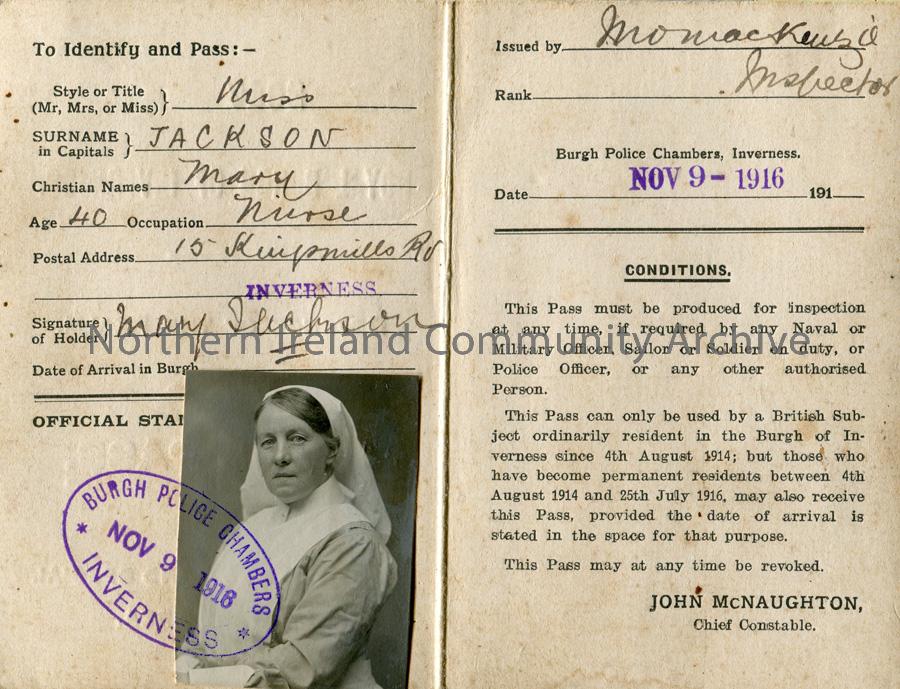 To Identify and Pass:—
Style or Title
(Mr, Mrs, or Miss) } Miss
SURNAME
in Capitals } JACKSON
Christian Names Mary
Age 40 Occupation Nurse
Postal Address 15 Kingsmills Rd
INVERNESS
Signature
of Holder } Mary Jackson
Date of Arrival in Burgh
OFFICIAL STA
BURGH POLICE CHAMBERS
NOV 9 1916
* INVERNESS *
Issued by MacKenzie
Rank Inspector
Burgh Police Chambers, Inverness.
Date NOV 9 - 1916 191
CONDITIONS.
This Pass must be produced for inspection
at any time, if required by any Naval or
Military Officer, Sailor or Soldier on duty, or
Police Officer, or any other authorised
Person.
This Pass can only be used by a British Sub-
ject ordinarily resident in the Burgh of In-
verness since 4th August 1914; but those who
have become permanent residents between 4th
August 1914 and 25th July 1916, may also receive
this Pass, provided the date of arrival is
stated in the space for that purpose.
This Pass may at any time be revoked.
JOHN McNAUGHTON,
Chief Constable.
Northern Ireland Community Archive